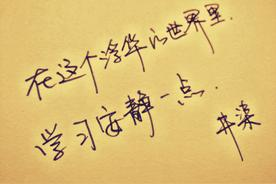 在这个浮华的世界里.
学习安静一点.